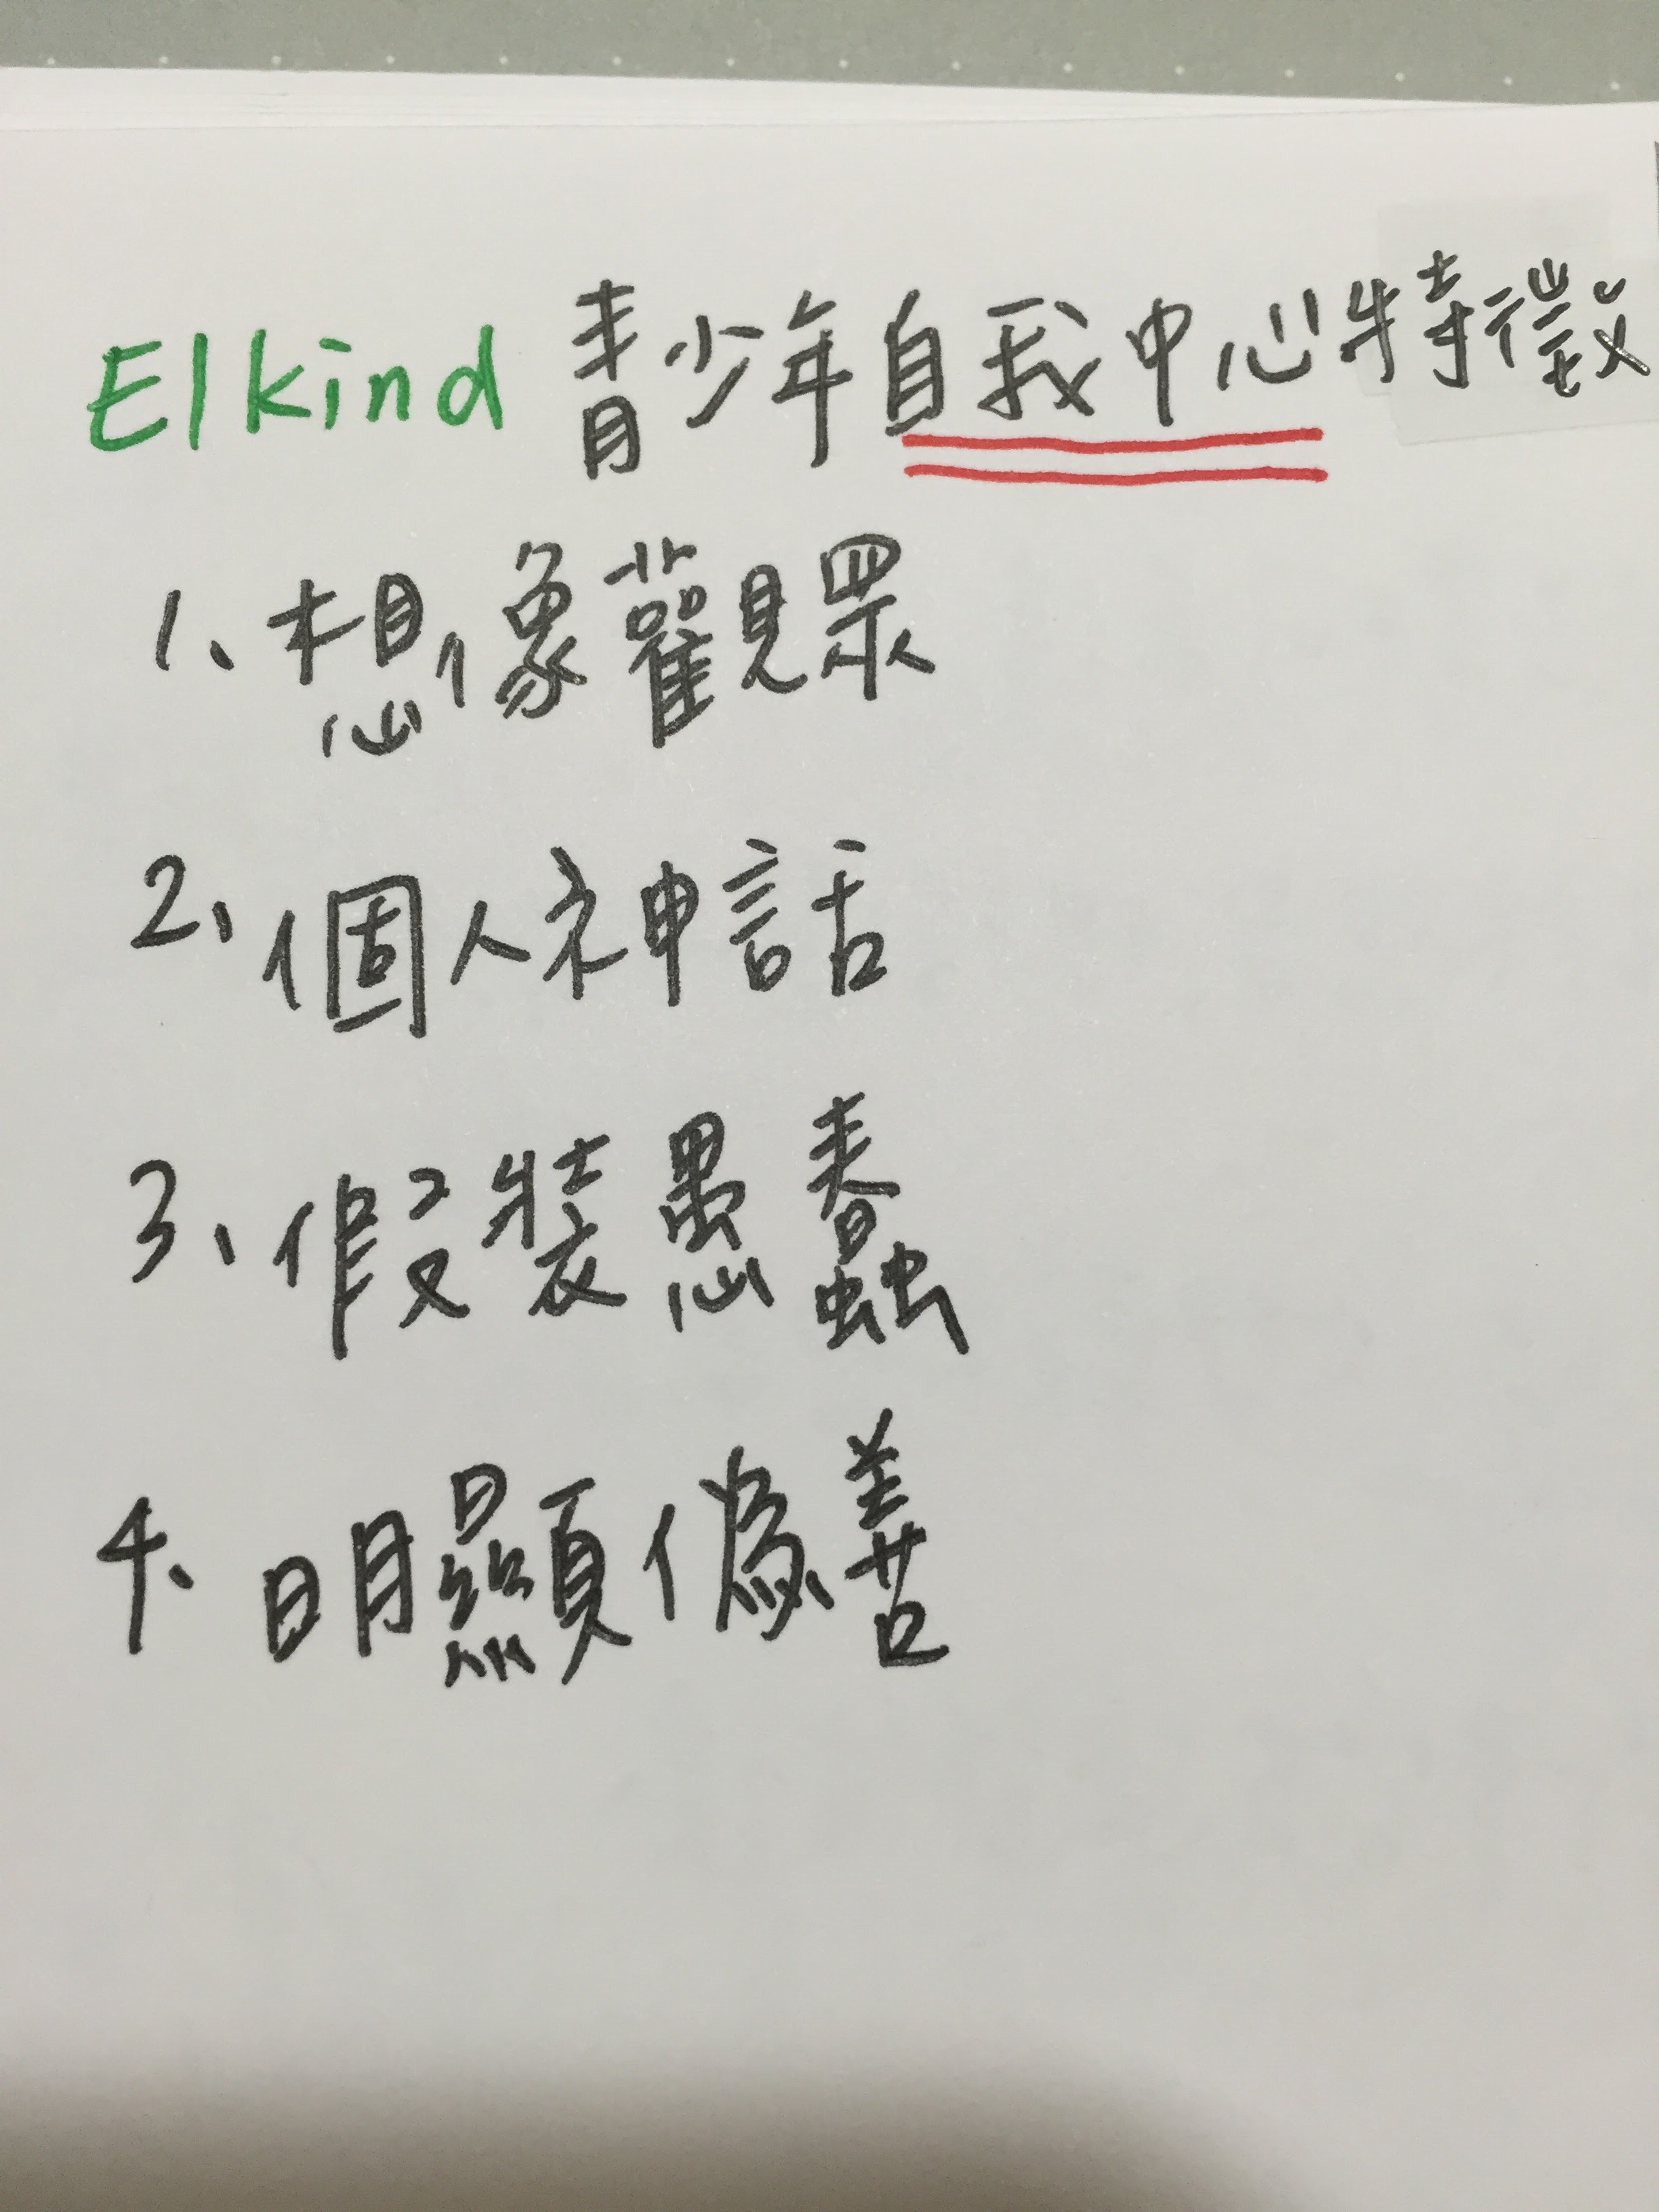 Elkind 青少年自我中心特徵
1、想像觀眾
2、個人神話
3、假裝愚蠢
4、明顯偽善